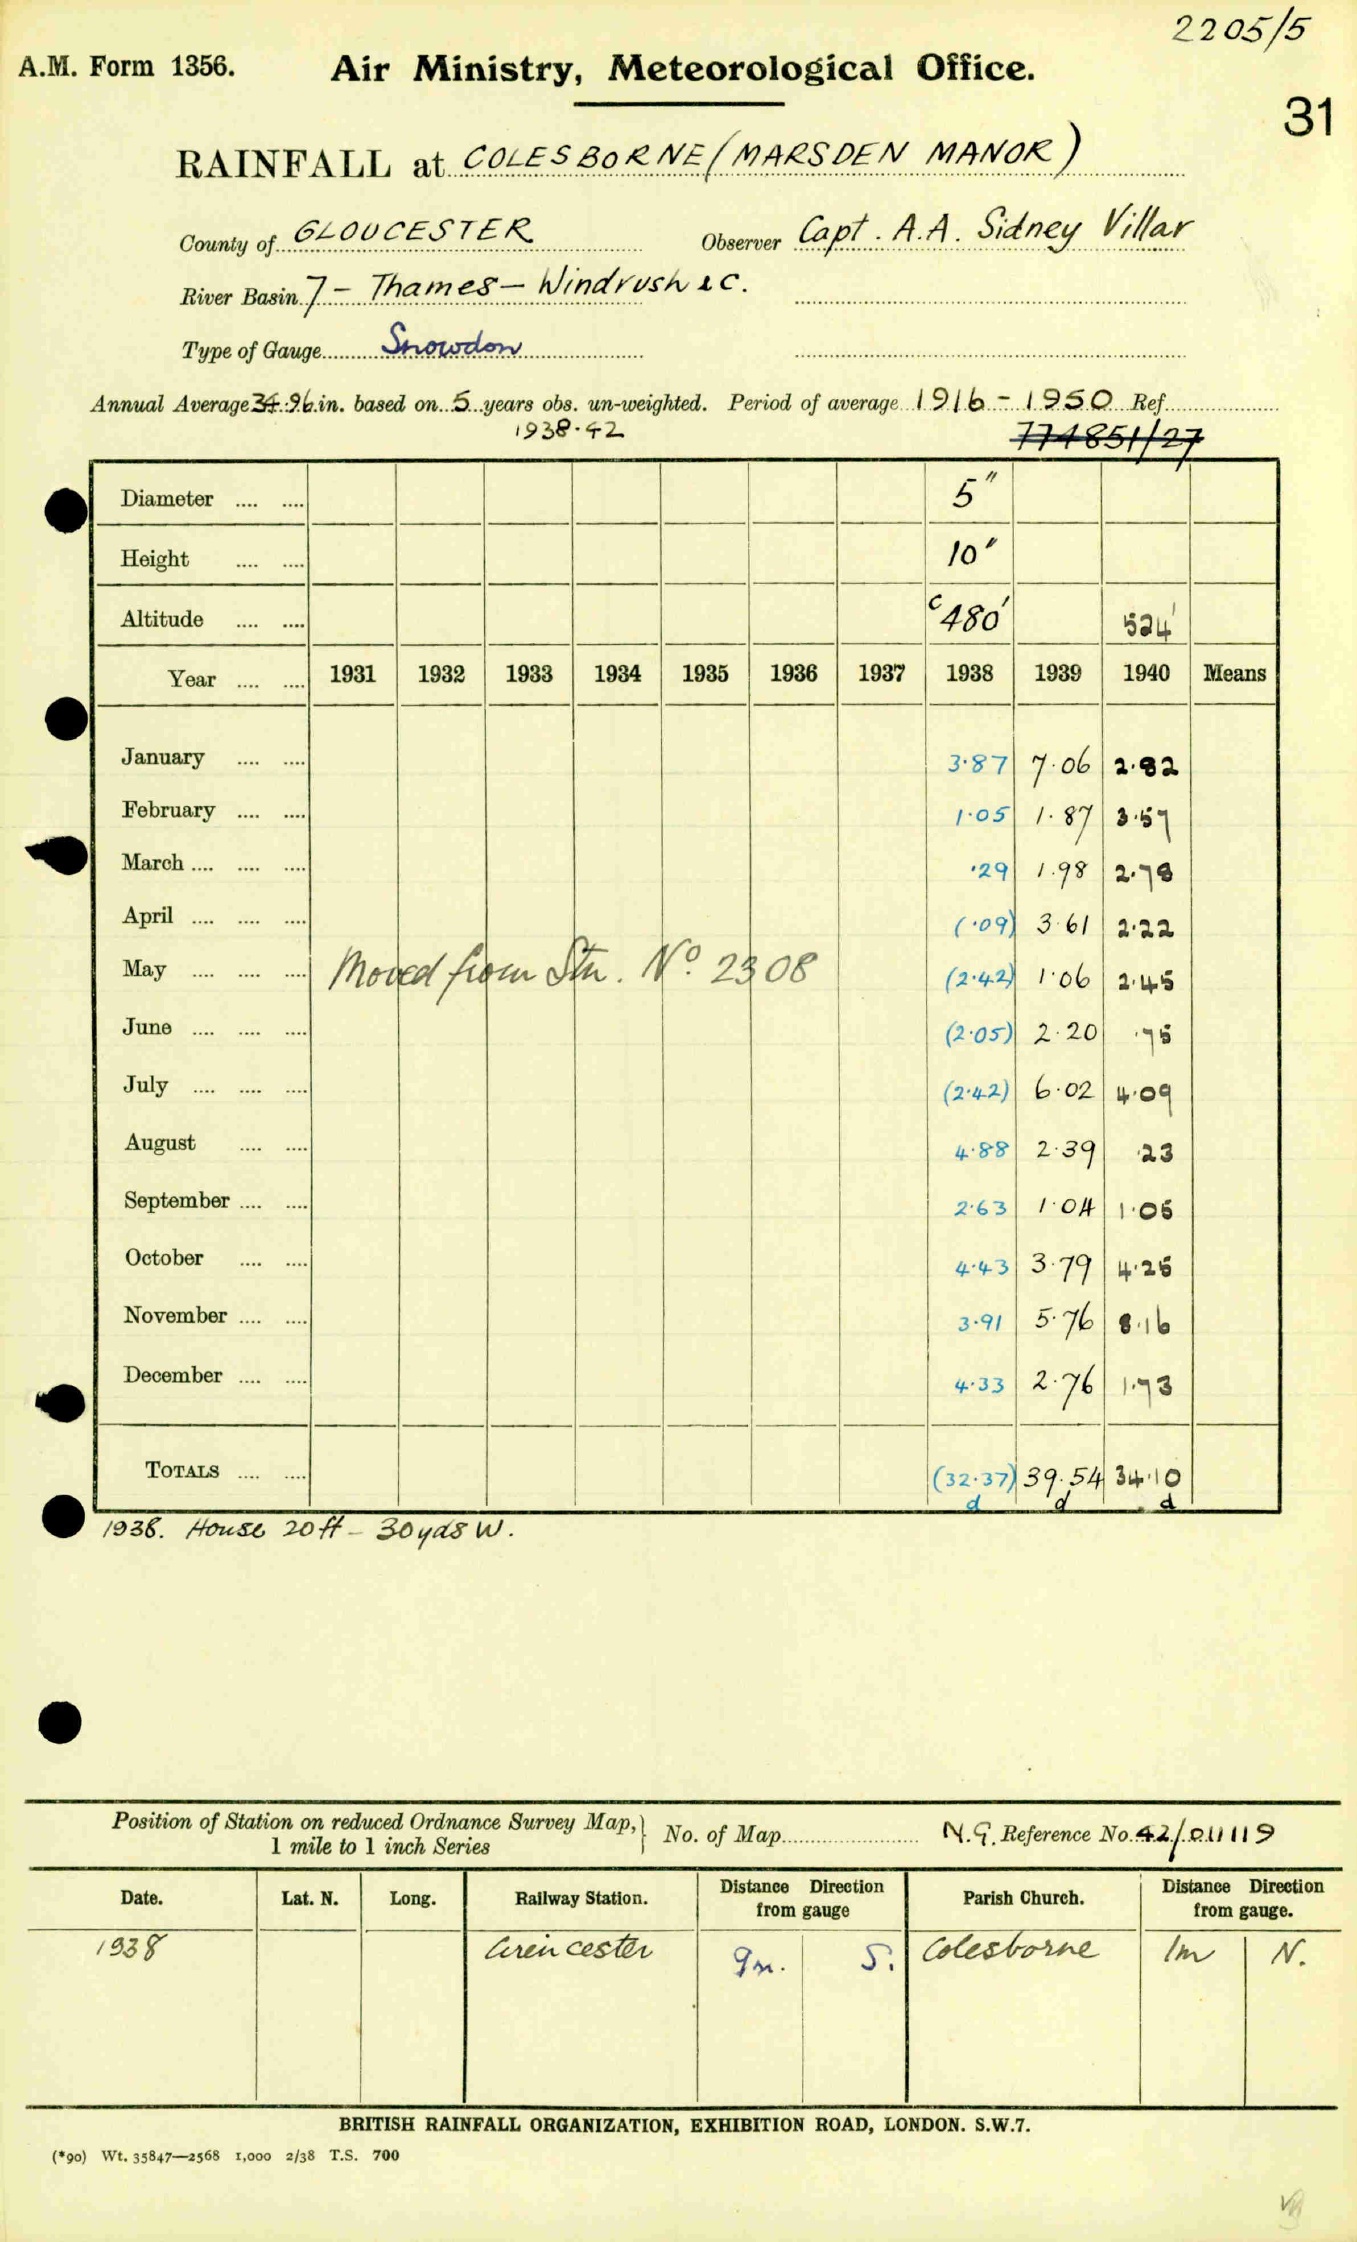 2205/5
A.M. Form 1356. Air Ministry, Meteorological Office.
31
RAINFALL at COLESBORNE (MARSDEN MANOR)
County of GLOUCESTER Observer Capt. A.A. Sidney Villar
River Basin 7 - Thames - Windrush &c.
Type of Gauge Snowdon
Annual Average 34.96 in. based on 5 years obs. un-weighted. Period of average 1916 - 1950 Ref.
1938-42 774851/27
Diameter .... .... 5"
Height .... .... 10"
Altitude .... .... c480' 524'
Year .... .... 1931 1932 1933 1934 1935 1936 1937 1938 1939 1940 Means
January .... .... 3.87 7.06 2.82
February .... .... 1.05 1.87 3.57
March .... .... .... .29 1.98 2.78
April .... .... .... (.09) 3.61 2.22
May .... .... .... Moved from Stn. No. 2308 (2.42) 1.06 2.45
June .... .... .... (2.05) 2.20 .75
July .... .... .... (2.42) 6.02 4.09
August .... .... 4.88 2.39 .23
September .... .... 2.63 1.04 1.05
October .... .... 4.43 3.79 4.25
November .... .... 3.91 5.76 8.16
December .... .... 4.33 2.76 1.73
TOTALS .... .... (32.37) 39.54 34.10
d d d
1938. House 20ft - 30yds W.
Position of Station on reduced Ordnance Survey Map, 1 mile to 1 inch Series } No. of Map N.G. Reference No. 42/011119
Date. Lat. N. Long. Railway Station. Distance Direction from gauge Parish Church. Distance Direction from gauge.
1938 Cirencester 9m. S. Colesborne 1m N.
BRITISH RAINFALL ORGANIZATION, EXHIBITION ROAD, LONDON. S.W.7.
(*90) Wt. 35847—2568 1,000 2/38 T.S. 700